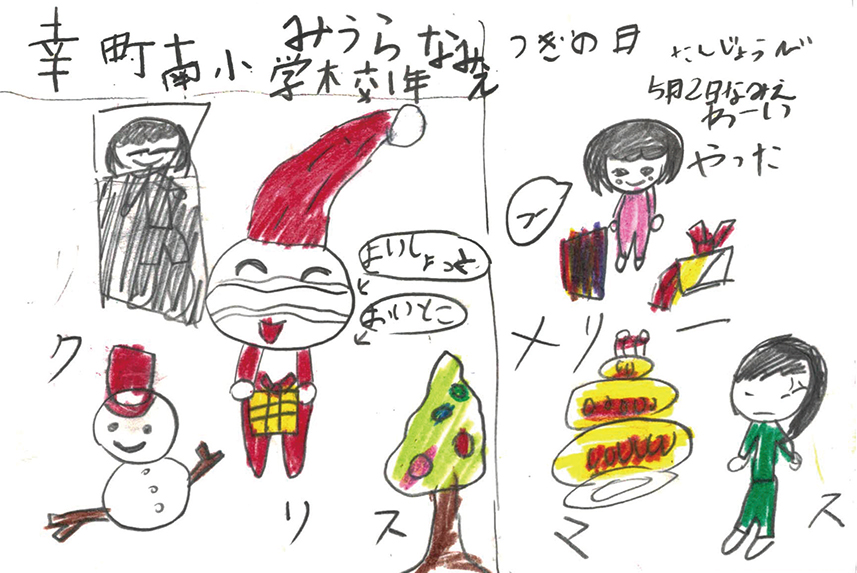 幸町南小学校1年 みうらなみえ
つぎの日
たんじょうび
5月2日なみえ
わーい
やった
よいしょっと
おいとこ
メリー
クリスマス